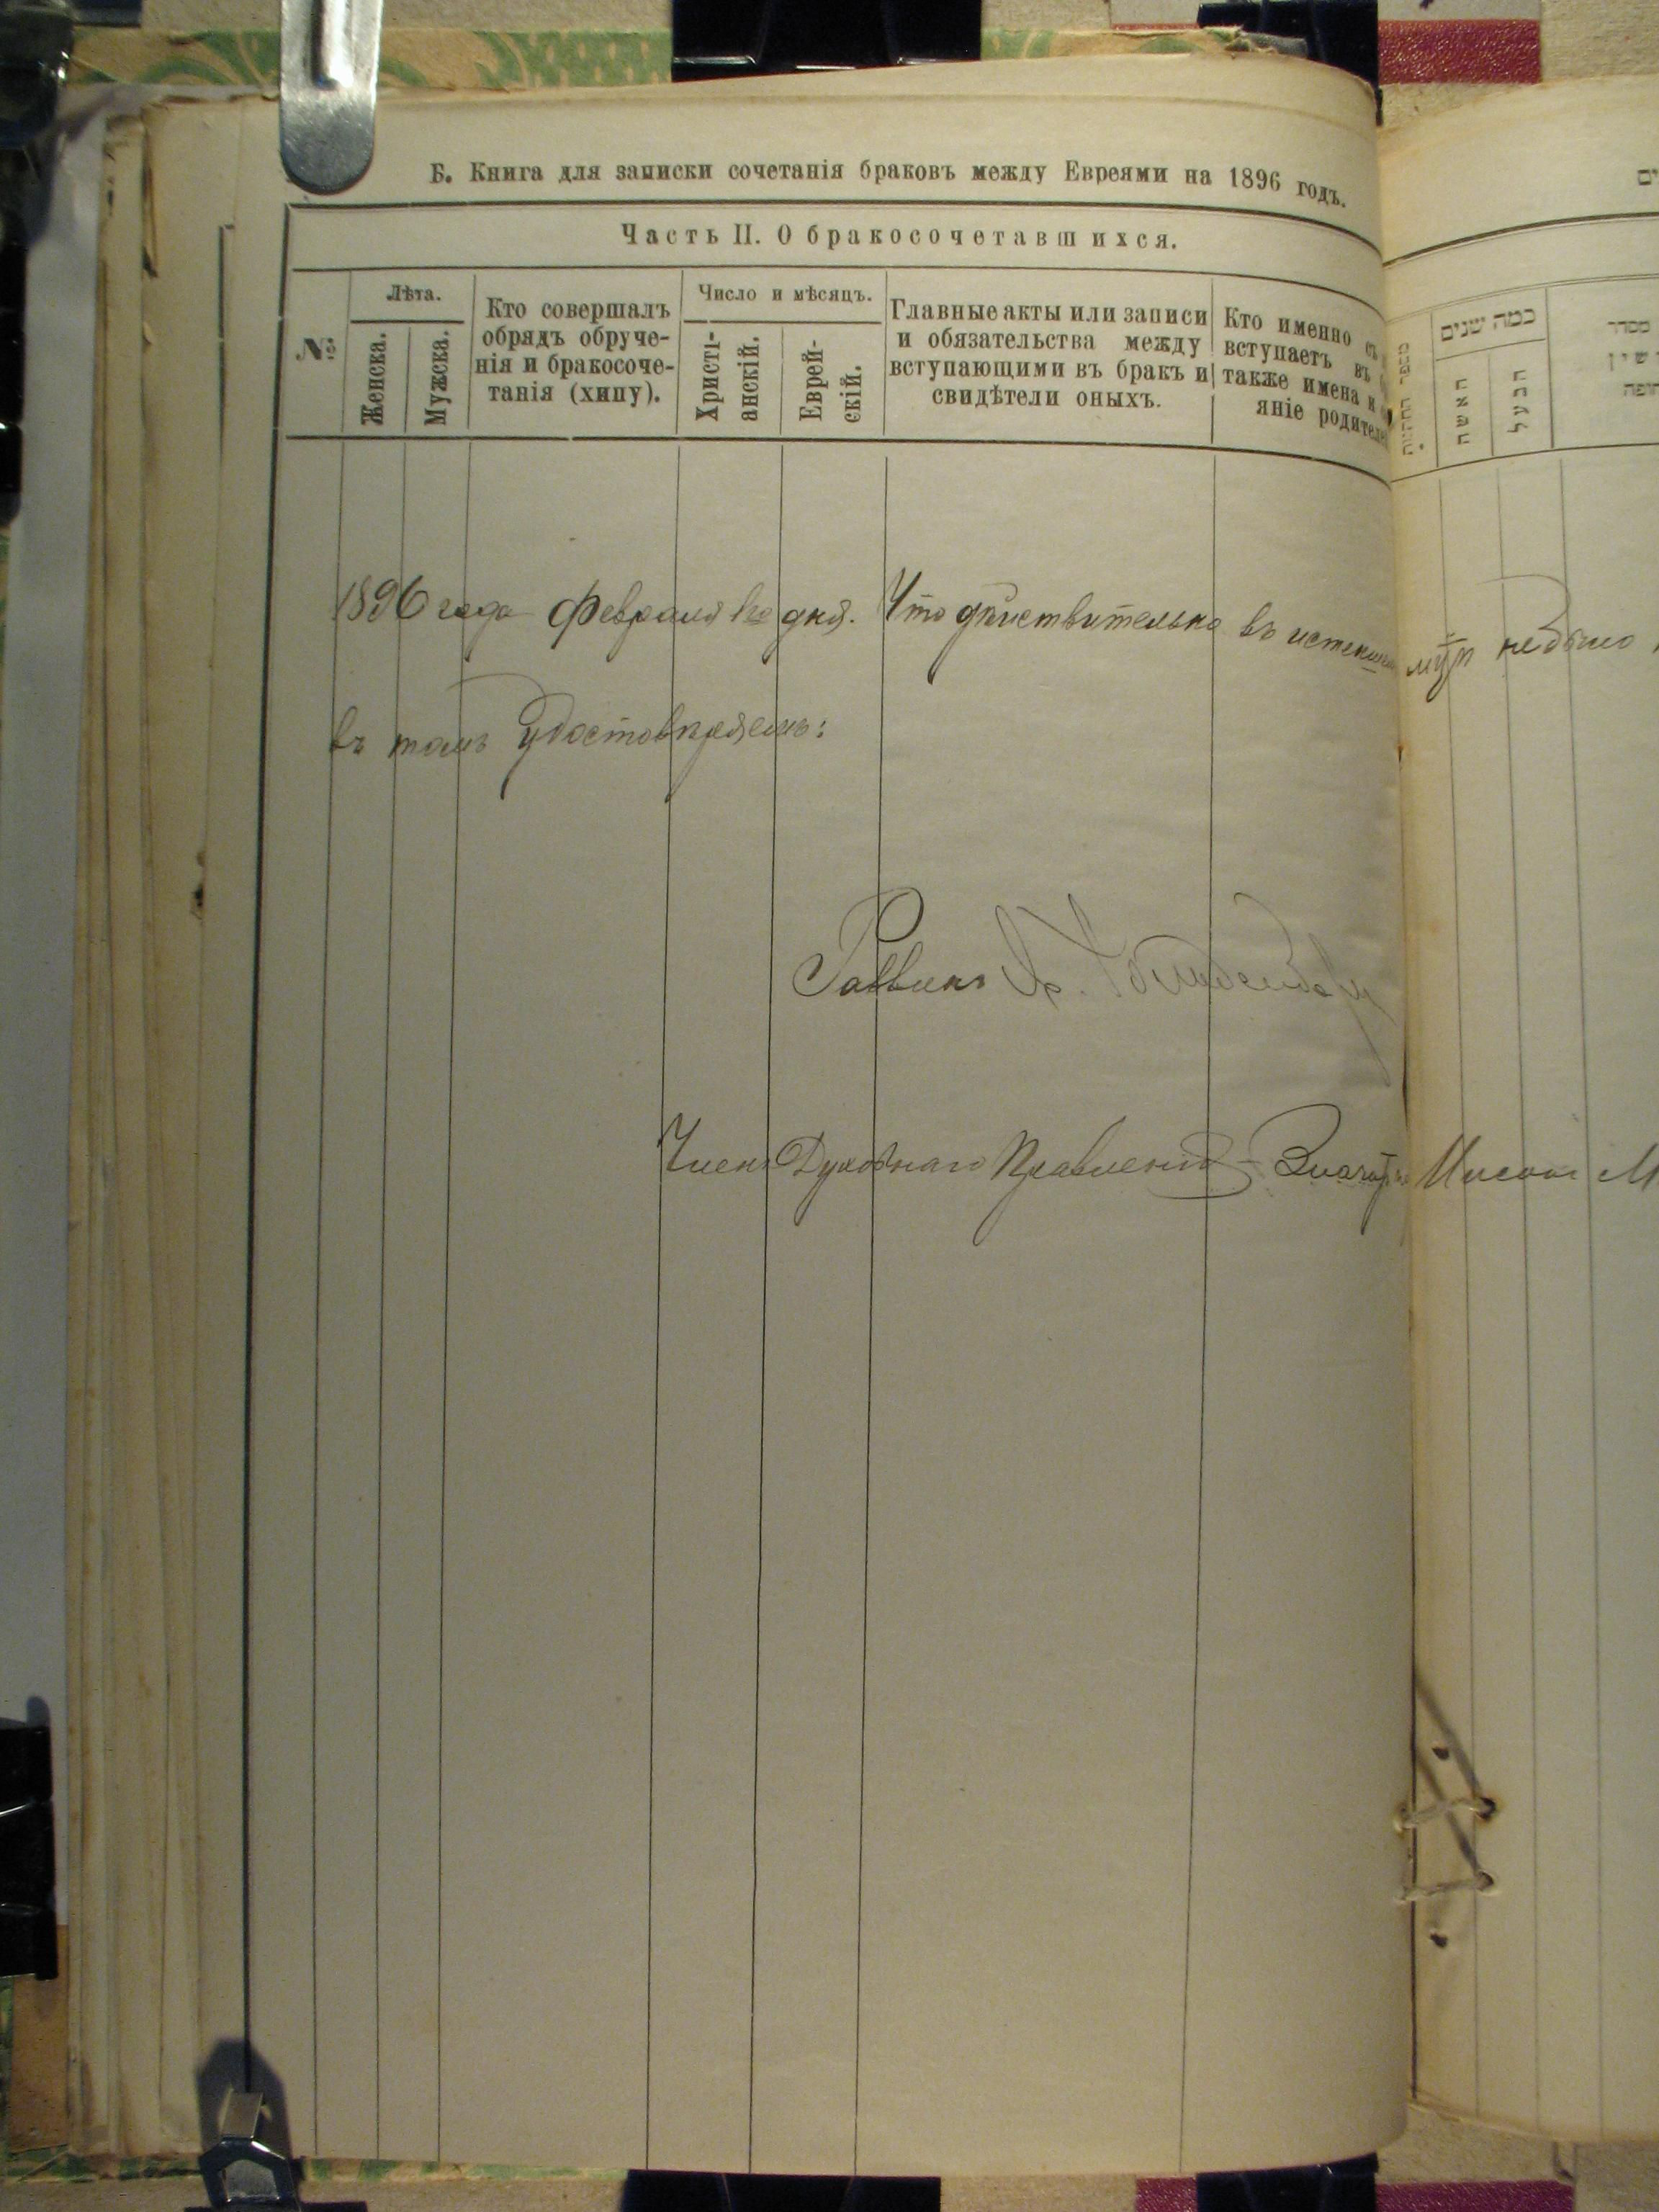 Б. Книга для записки сочетанія браковъ между Евреями на 1896 годъ.
Часть II. О бракосочетавшихся.
№
Лѣта.
Женска.
Мужска.
Кто совершалъ
обрядъ обруче-
нія и бракосоче-
танія (хипу).
Число и мѣсяцъ.
Христі-
анскій.
Еврей-
скій.
Главные акты или записи
и обязательства между
вступающими въ бракъ и
свидѣтели оныхъ.
Кто именно съ
вступаетъ въ
также имена и
яніе родителей
כמה שנים
האשה
הבעל
מסדר
1896 года Февраля 1го дня. Что дѣйствительно въ истекшемъ небыло
въ томъ удостовѣряемъ:
Раввинъ
Членъ Духовнаго Правленія